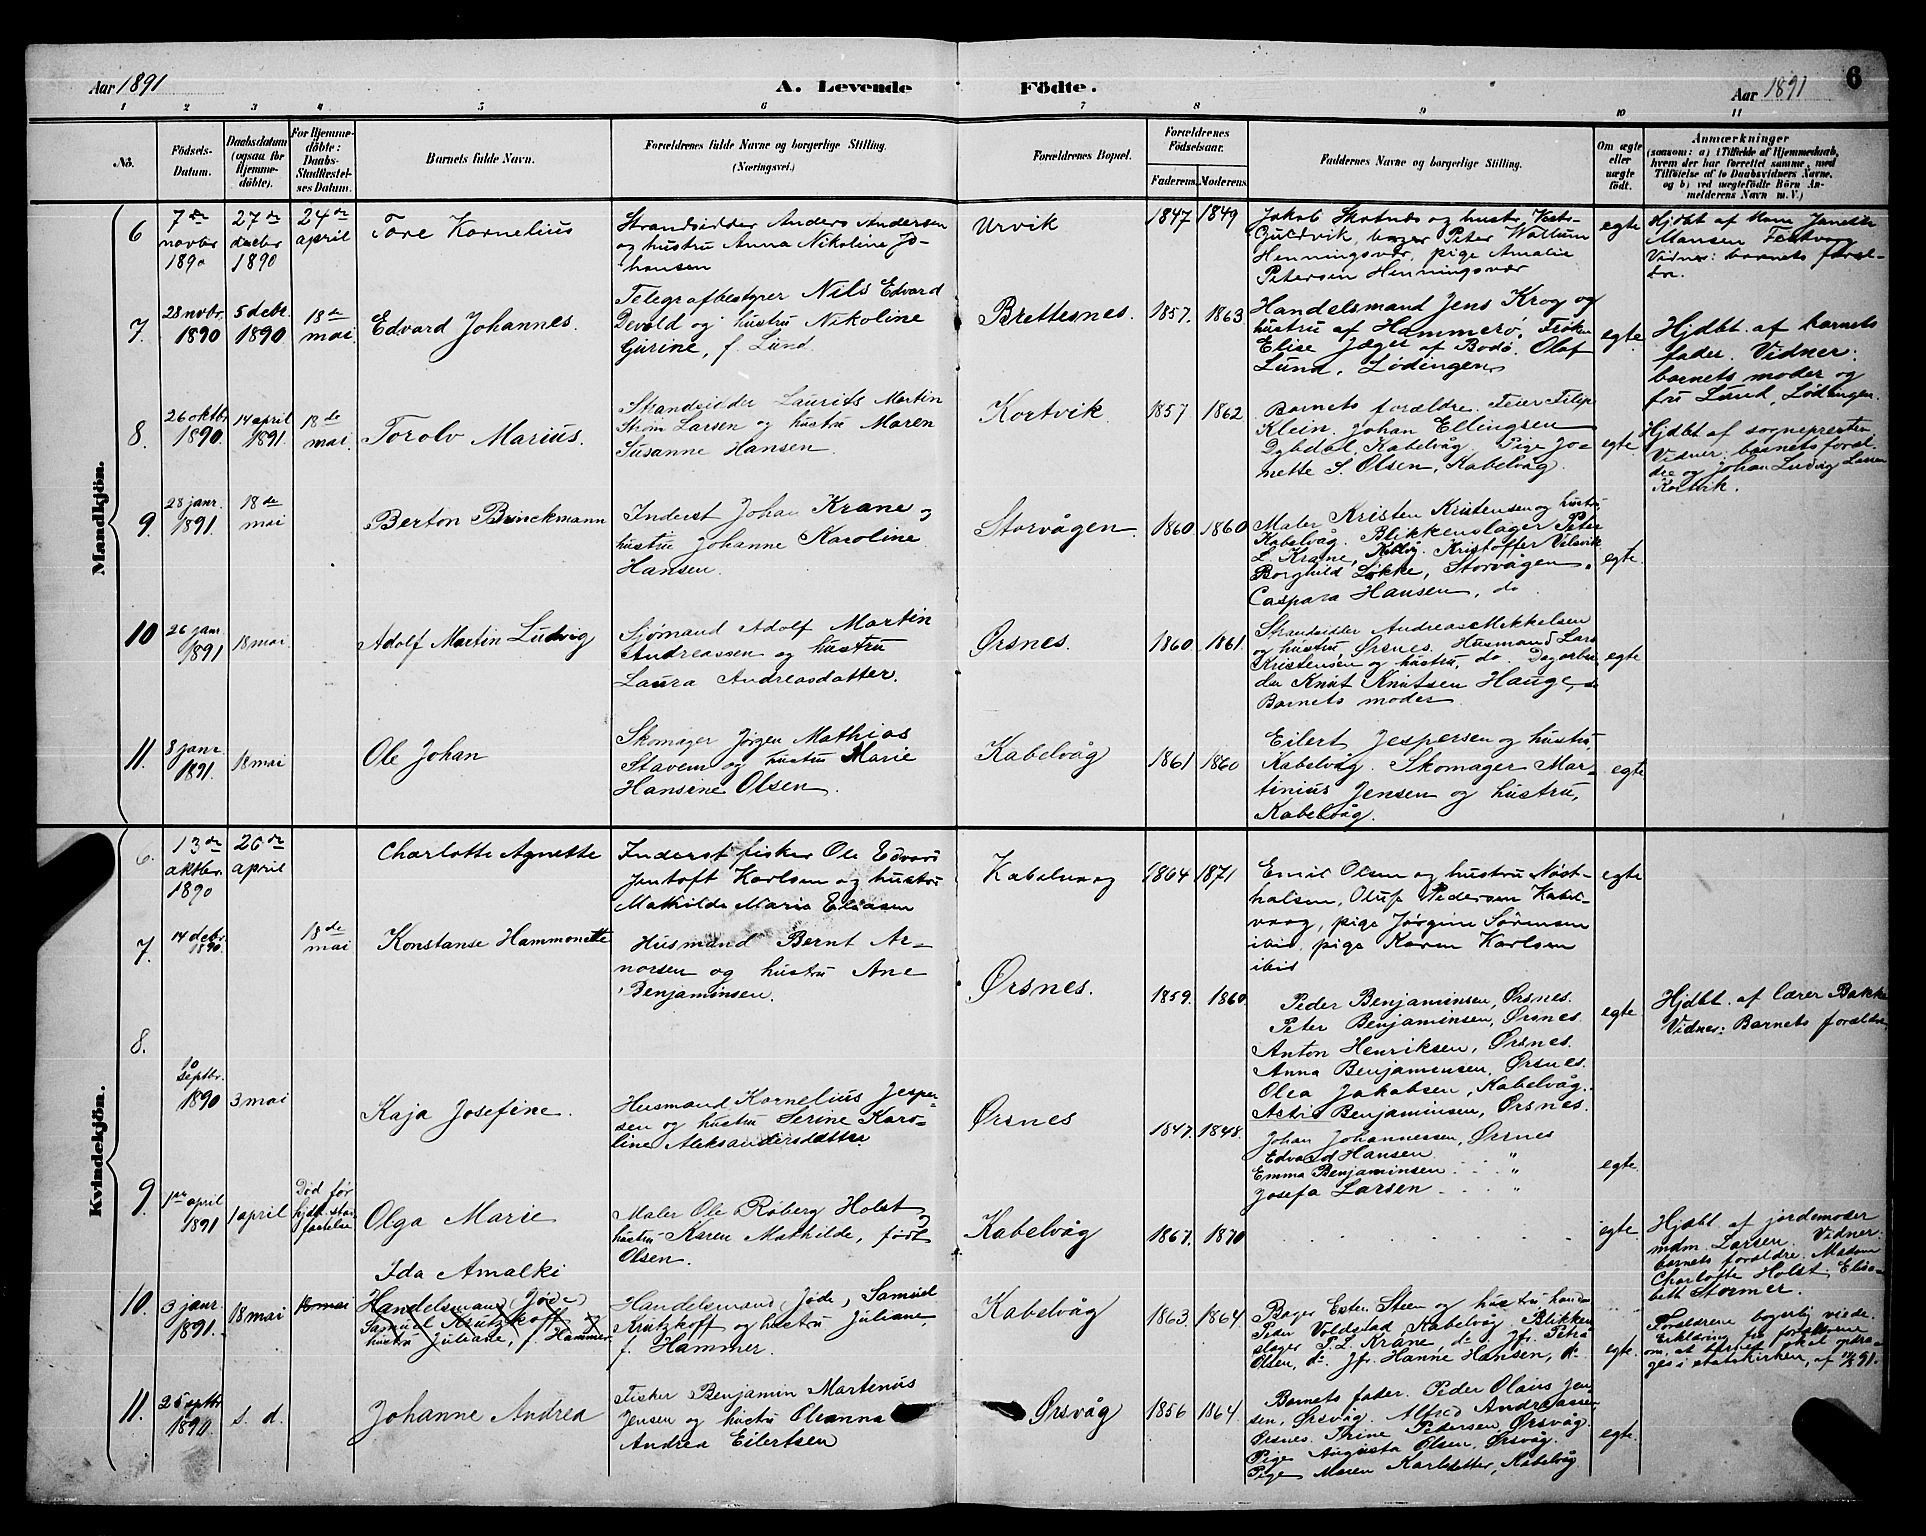 Aar 1891
A. Levende Födte.
Aar 1891
6
1 2 3 4 5 6 7 8 9 10 11
No.
Födsels-
Datum.
Daabsdatum
(ogsaa for
Hjemme-
döbte).
For Hjemme-
döbte:
Daabs-
Stadfæstel-
ses Datum.
Barnets fulde Navn.
Forældrenes fulde Navne og borgerlige Stilling.
(Næringsvei.)
Forældrenes Bopæl.
Forældrenes
Födselsaar.
Faderens. Moderens.
Faddernes Navne og borgerlige Stilling.
Om ægte
eller
uægte
födt.
Anmærkninger
(saasom: a) i Tilfælde af Hjemmedaab,
hvem der har forrettet samme, med
Tilföielse af to Daabsvidners Navne.
og b) ved uægtefödte Börn An-
melderens Navn m. V.)
Mandkjön.
6
7de
novbr
1890
27de
decbr
1890
24de
april
Tore Kornelius
Strandsidder Anders Andersen
og hustru Anna Nikoline Jo-
hansen
Urvik
1847 1849
Jakob Skotnes og hustr,
Guldvik, bager Peter Wallum
Henningsvær, pige Amalie
Petersen Henningsvær
egte
Hjdbt af
Hansen
Vidner: barnets foræl-
dre.
7.
28 novbr.
1890
5 debr.
1890
18de
mai
Edvard Johannes.
Telegrafbestyrer Nils Edvard
Devold og hustru Nikoline
Gurine, f. Lund.
Brettesnes.
1857. 1863.
Handelsmand Jens Krog og
hustru af Hammerö, Frøken
Elise Jæger af Bodö. Olaf
Lund, Lødingen
egte
Hjdbt. af barnets
fader. Vidner:
barnets moder og
fru Lund, Lödingen.
8.
26 oktbr.
1890.
14 april
1891.
18de
mai
Torolv Marius.
Strandsidder Laurits Martin
Strøm Larsen og hustru Maren
Susanne Hansen.
Kortvik
1857. 1862.
Barnets forældre. Feier Filip
Klein. Johan Ellingsen
Dybdal, Kabelvåg Pige Jo-
nette S. Olsen, Kabelvåg.
egte
Hjdbt af sognepresten
Vidner: barnets foræl-
dre og Johan Ludvig Larsen
Kortvik.
9.
28 janr.
1891.
18de
mai
Berton Brinckmann
Inderst Johan Krane og
hustru Johanne Karoline
Hansen.
Storvågen
1860 1860
Maler Kristen Kristensen og hustru
Kabelvåg. Blikkenslager Peter
L. Krane, Kblvg. Kristoffer
Borghild Løkke, Storvågen.
Caspara Hansen, do
egte.
10
26 janr.
1891
18 mai
Adolf Martin Ludvig
Sjömand Adolf Martin
Andreassen og hustru
Laura Andreasdatter.
Ørsnes.
1860. 1861.
Strandsidder Andreas Mikkelsen
og hustru, Ørsnes. Husmand Lars
Kristensen og hustru, do. Dagarbei
der Knut Knutsen Hauge,
Barnets moder
egte
11.
8 janr.
1891.
18 mai
Ole Johan
Skomager Jörgen Mathias
Stavem og hustru Marie
Hansine Olsen.
Kabelvåg
1861 1860
Eilert Jespersen og hustru,
Kabelvåg. Skomager Mar-
tinius Jensen og hustru,
Kabelvåg.
egte
Kvindekjön.
6.
13de
oktbr.
1890
26de
april
Charlotte Agnette
Inderst fisker Ole Edvard
Jentoft Karlsen og hustru
Mathilde Marie Eliasen
Kabelvaag
1864 1871
Emil Olsen og hustru Nöst-
halsen, Oluf Pedersen Kabel-
vaag, pige Jørgine Sørensen
ibid. pige Karen Karlsen
ibid
egte
7.
14 debr.
1890.
18de
mai
Konstanse Hammonette
Husmand Bernt Ar-
norsen og hustru Ane
Benjaminsen.
Ørsnes.
1859. 1860.
Peder Benjaminsen, Ørsnes.
Peter Benjaminsen, Ørsnes.
Anton Henriksen, Ørsnes.
Anna Benjaminsen. Ørsnes.
Olea Jakobsen, Kabelvåg.
Benjaminsen, Ørsnes.
egte
Hjdbt. af lærer Bakke
Vidner: Barnets forældre
8.
10
septbr.
1890
3 mai
Kaja Josefine.
Husmand Kornelius Jesper-
sen og hustru Serine Karo-
line Aleksandersdatter
Ørsnes
1847. 1848.
Johan Johannessen, Ørsnes
Edvard Hansen "
Emma Benjaminsen "
Josefa Larsen "
egte
9.
1ste april
1891
1 april
Død før
hjdb. stad-
fæstelse
Olga Marie
Maler Ole Røberg Holst og
hustru Karen Mathilde, født
Olsen.
Kabelvåg
1867. 1870
egte
Hjdbt af jordemoder
mdm. Larsen. Vidner:
barnets forældre. Madam
Charlotte Holst. Elisa-
bett Stormer.
10.
3 janr.
1891.
18 mai
18 mai
Ida Amalki
Handelsmand (Jøde)
Samuel Krutzkoff og
hustru Juliane, f. Hammer.
Handelsmand (Jøde, Samuel
Krutzkoff og hustru Juliane
f. Hammer.
Kabelvåg
1863. 1864
Bager Esten Steen og hustru
Peder Voldstad, Kabelvåg. Blikken
slager P. L. Krane, do Jfr. Petra
Olsen, do. Jfr. Hanne Hansen, do
egte.
Forældrene
Erklæring fra forældrene
om, at barnet skal opdra-
ges i statskirken, af 91.
11.
25 septbr
1890.
s. d.
Johanne Andrea
Fisker Benjamin Martenus
Jensen og hustru Oleanna
Andrea Eilertsen
Ørsvåg
1856 1864.
Barnets fader. Peder Olaus Jen-
sen, Ørsvåg. Alfred Andreassen
Ørsnes. Trine Pedersen, Ørsvåg.
Pige Augusta Olsen, Ørsvåg.
Pige Maren Karlsdatter, Kabelvåg
egte.